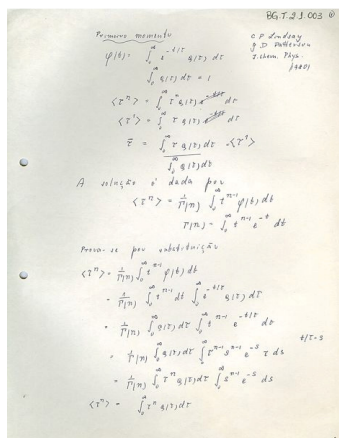 BG.T.21.003
Primeiro momento
C P Lindsay
g D Patterson
J. Chem. Phys.
φ(t) = ∫₀^∞ e^{-t/τ} g(τ) dτ
∫₀^∞ g(τ) dτ = 1
<τⁿ> = ∫₀^∞ τⁿ g(τ) dτ
<τ¹> = ∫₀^∞ τ g(τ) dτ
τ̄ = ∫₀^∞ τ g(τ) dτ / ∫₀^∞ g(τ) dτ = <τ¹>
A solução é dada por
<τⁿ> = 1/Γ(n) ∫₀^∞ t^{n-1} φ(t) dt
Γ(n) = ∫₀^∞ t^{n-1} e^{-t} dt
Prova-se por substituição
<τⁿ> = 1/Γ(n) ∫₀^∞ t^{n-1} φ(t) dt
= 1/Γ(n) ∫₀^∞ t^{n-1} dt ∫₀^∞ e^{-t/τ} g(τ) dτ
= 1/Γ(n) ∫₀^∞ g(τ) dτ ∫₀^∞ t^{n-1} e^{-t/τ} dt
t/τ = s
= 1/Γ(n) ∫₀^∞ g(τ) dτ ∫₀^∞ τ^{n-1} s^{n-1} e^{-s} τ ds
= 1/Γ(n) ∫₀^∞ τⁿ g(τ) dτ ∫₀^∞ s^{n-1} e^{-s} ds
<τⁿ> = ∫₀^∞ τⁿ g(τ) dτ